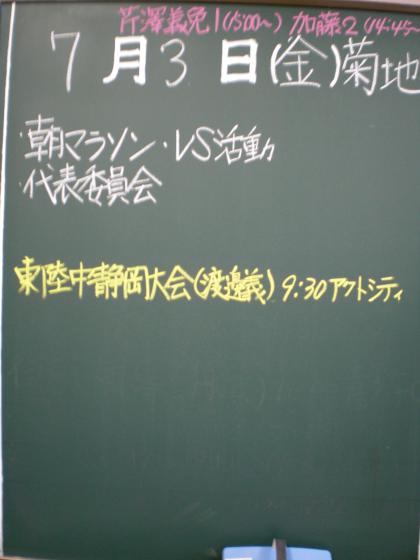 芹澤義免1(15:00~) 加藤2(14:45~
7月3日(金)菊地
・朝マラソン・VS活動
・代表委員会
東陸中静岡大会(渡邊義)9:30アクトシティ